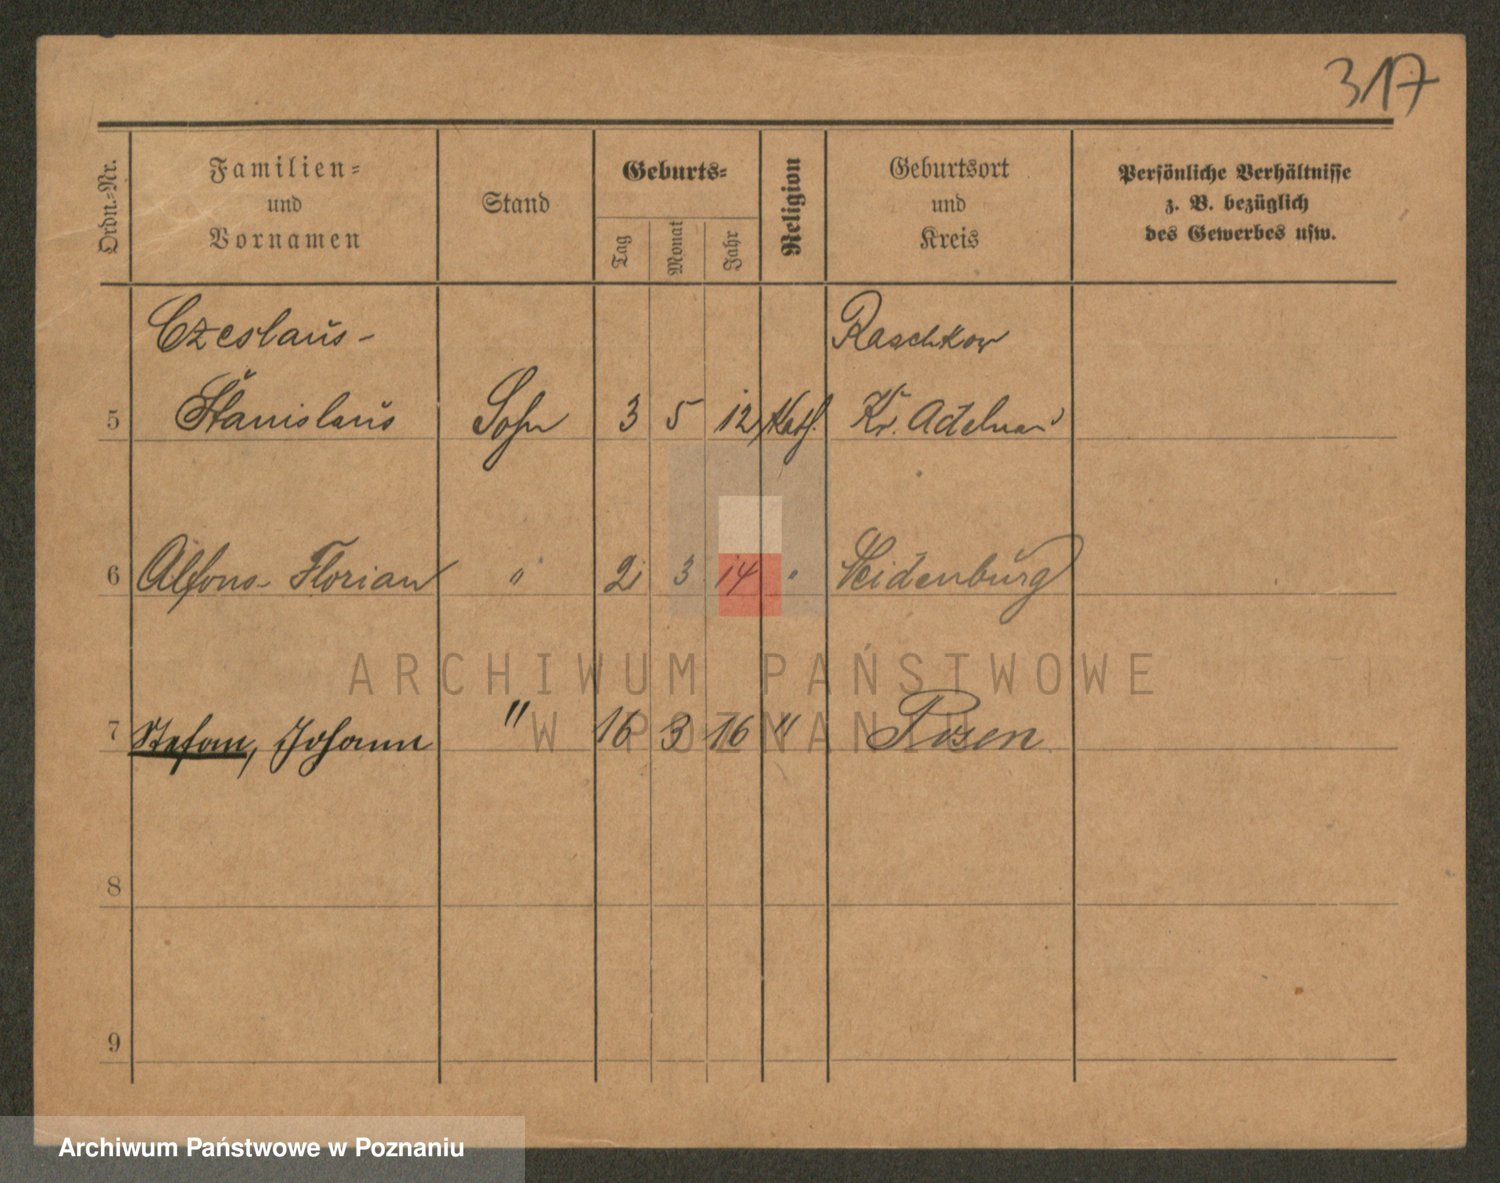 317
Ordn.-Nr.
Familien-
und
Vornamen
Stand
Geburts-
Tag
Monat
Jahr
Religion
Geburtsort
und
Kreis
Persönliche Verhältnisse
z. B. bezüglich
des Gewerbes usw.
Czeslaus- Raschkow
5 Stanislaus Sohn 3 5 12 Kath. Kr. Adelnau
6 Alfons- Florian " 2 3 14 " Seidenburg
ARCHIWUM PAŃSTWOWE
W POZNANIU
7 Stefan, Johann " 16 3 16 " Posen
8
9
Archiwum Państwowe w Poznaniu